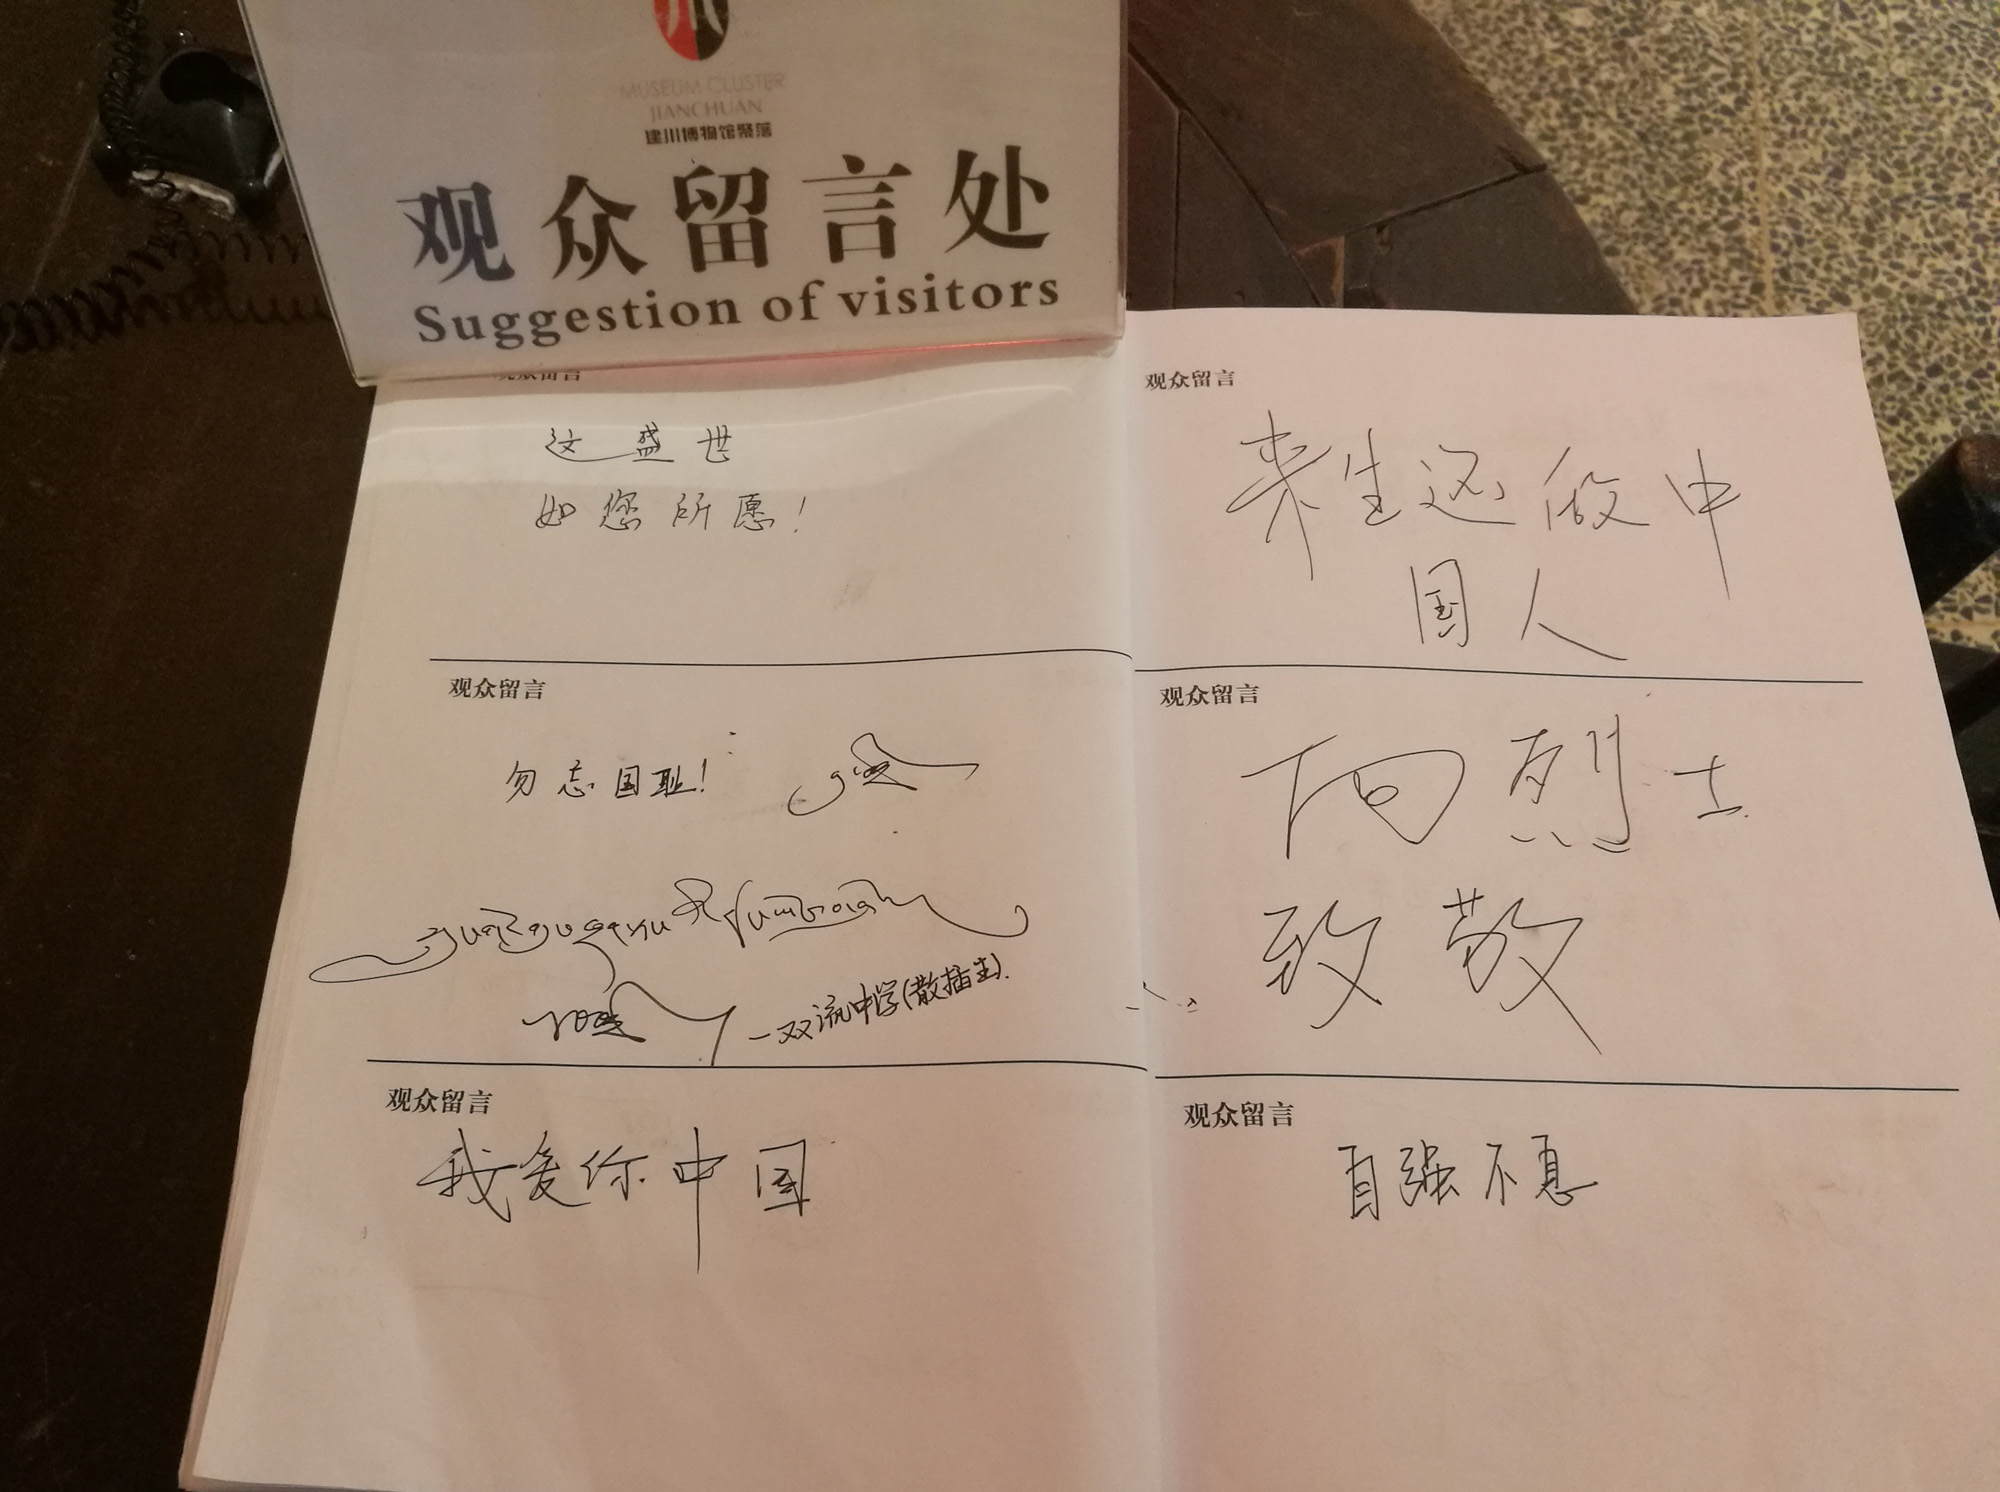 MUSEUM CLUSTER
JIANCHUAN
建川博物馆聚落
观众留言处
Suggestion of visitors
观众留言
这盛世
如您所愿!
观众留言
勿忘国耻!
—双流中学(散插生).
观众留言
我爱你中国
观众留言
来生还做中
国人
观众留言
向烈士
致敬
观众留言
自强不息